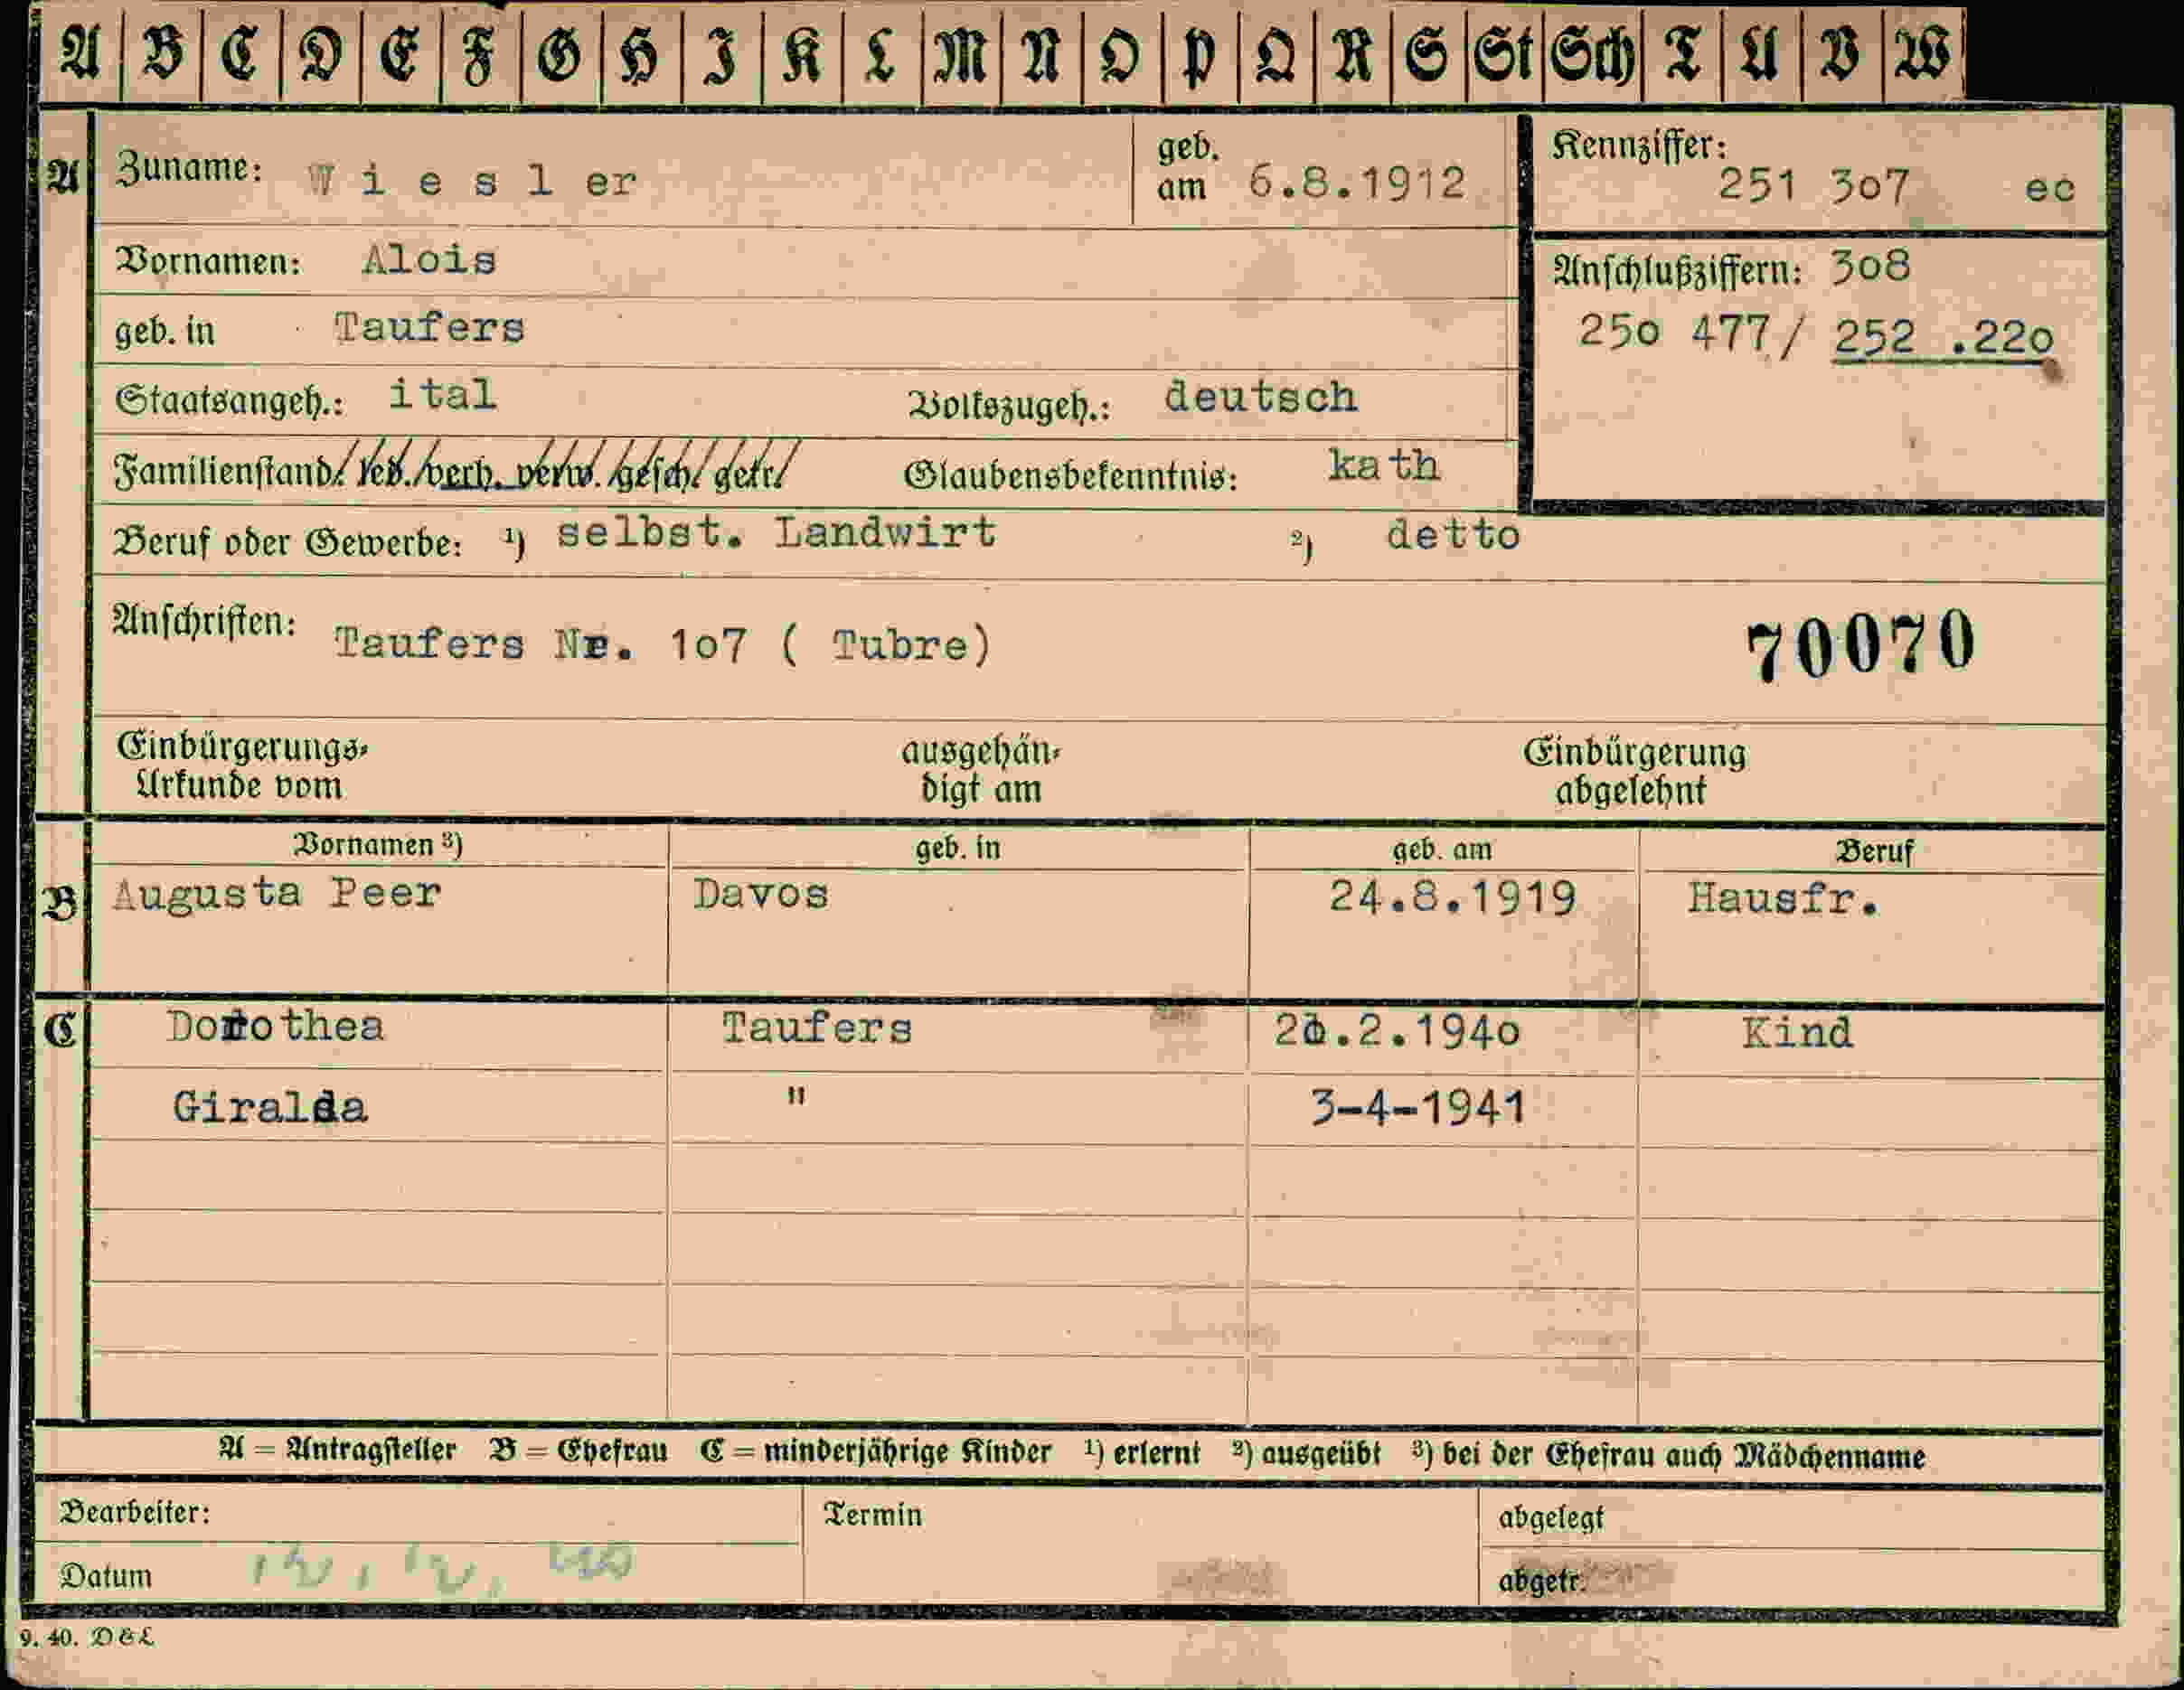 A B C D E F G H I K L M N O P Q R S St Sch T U V W
A Zuname: Wiesler geb. am 6.8.1912 Kennziffer: 251 3o7 ec
Vornamen: Alois Anschlußziffern: 3o8
geb. in Taufers 25o 477/ 252 .22o
Staatsangeh.: ital Volkszugeh.: deutsch
Familienstand: led. verh. verw. gesch. getr. Glaubensbekenntnis: kath
Beruf oder Gewerbe: 1) selbst. Landwirt 2) detto
Anschriften: Taufers Nr. 1o7 ( Tubre) 70070
Einbürgerungs- ausgehän- Einbürgerung
Urkunde vom digt am abgelehnt
Vornamen 3) geb. in geb. am Beruf
B Augusta Peer Davos 24.8.1919 Hausfr.
C Dorothea Taufers .2.194o Kind
Giralda " 3-4-1941
A = Antragsteller B = Ehefrau C = minderjährige Kinder 1) erlernt 2) ausgeübt 3) bei der Ehefrau auch Mädchenname
Bearbeiter: Termin abgelegt
Datum 12. 12. 40 abgetr.
9. 40. D & L